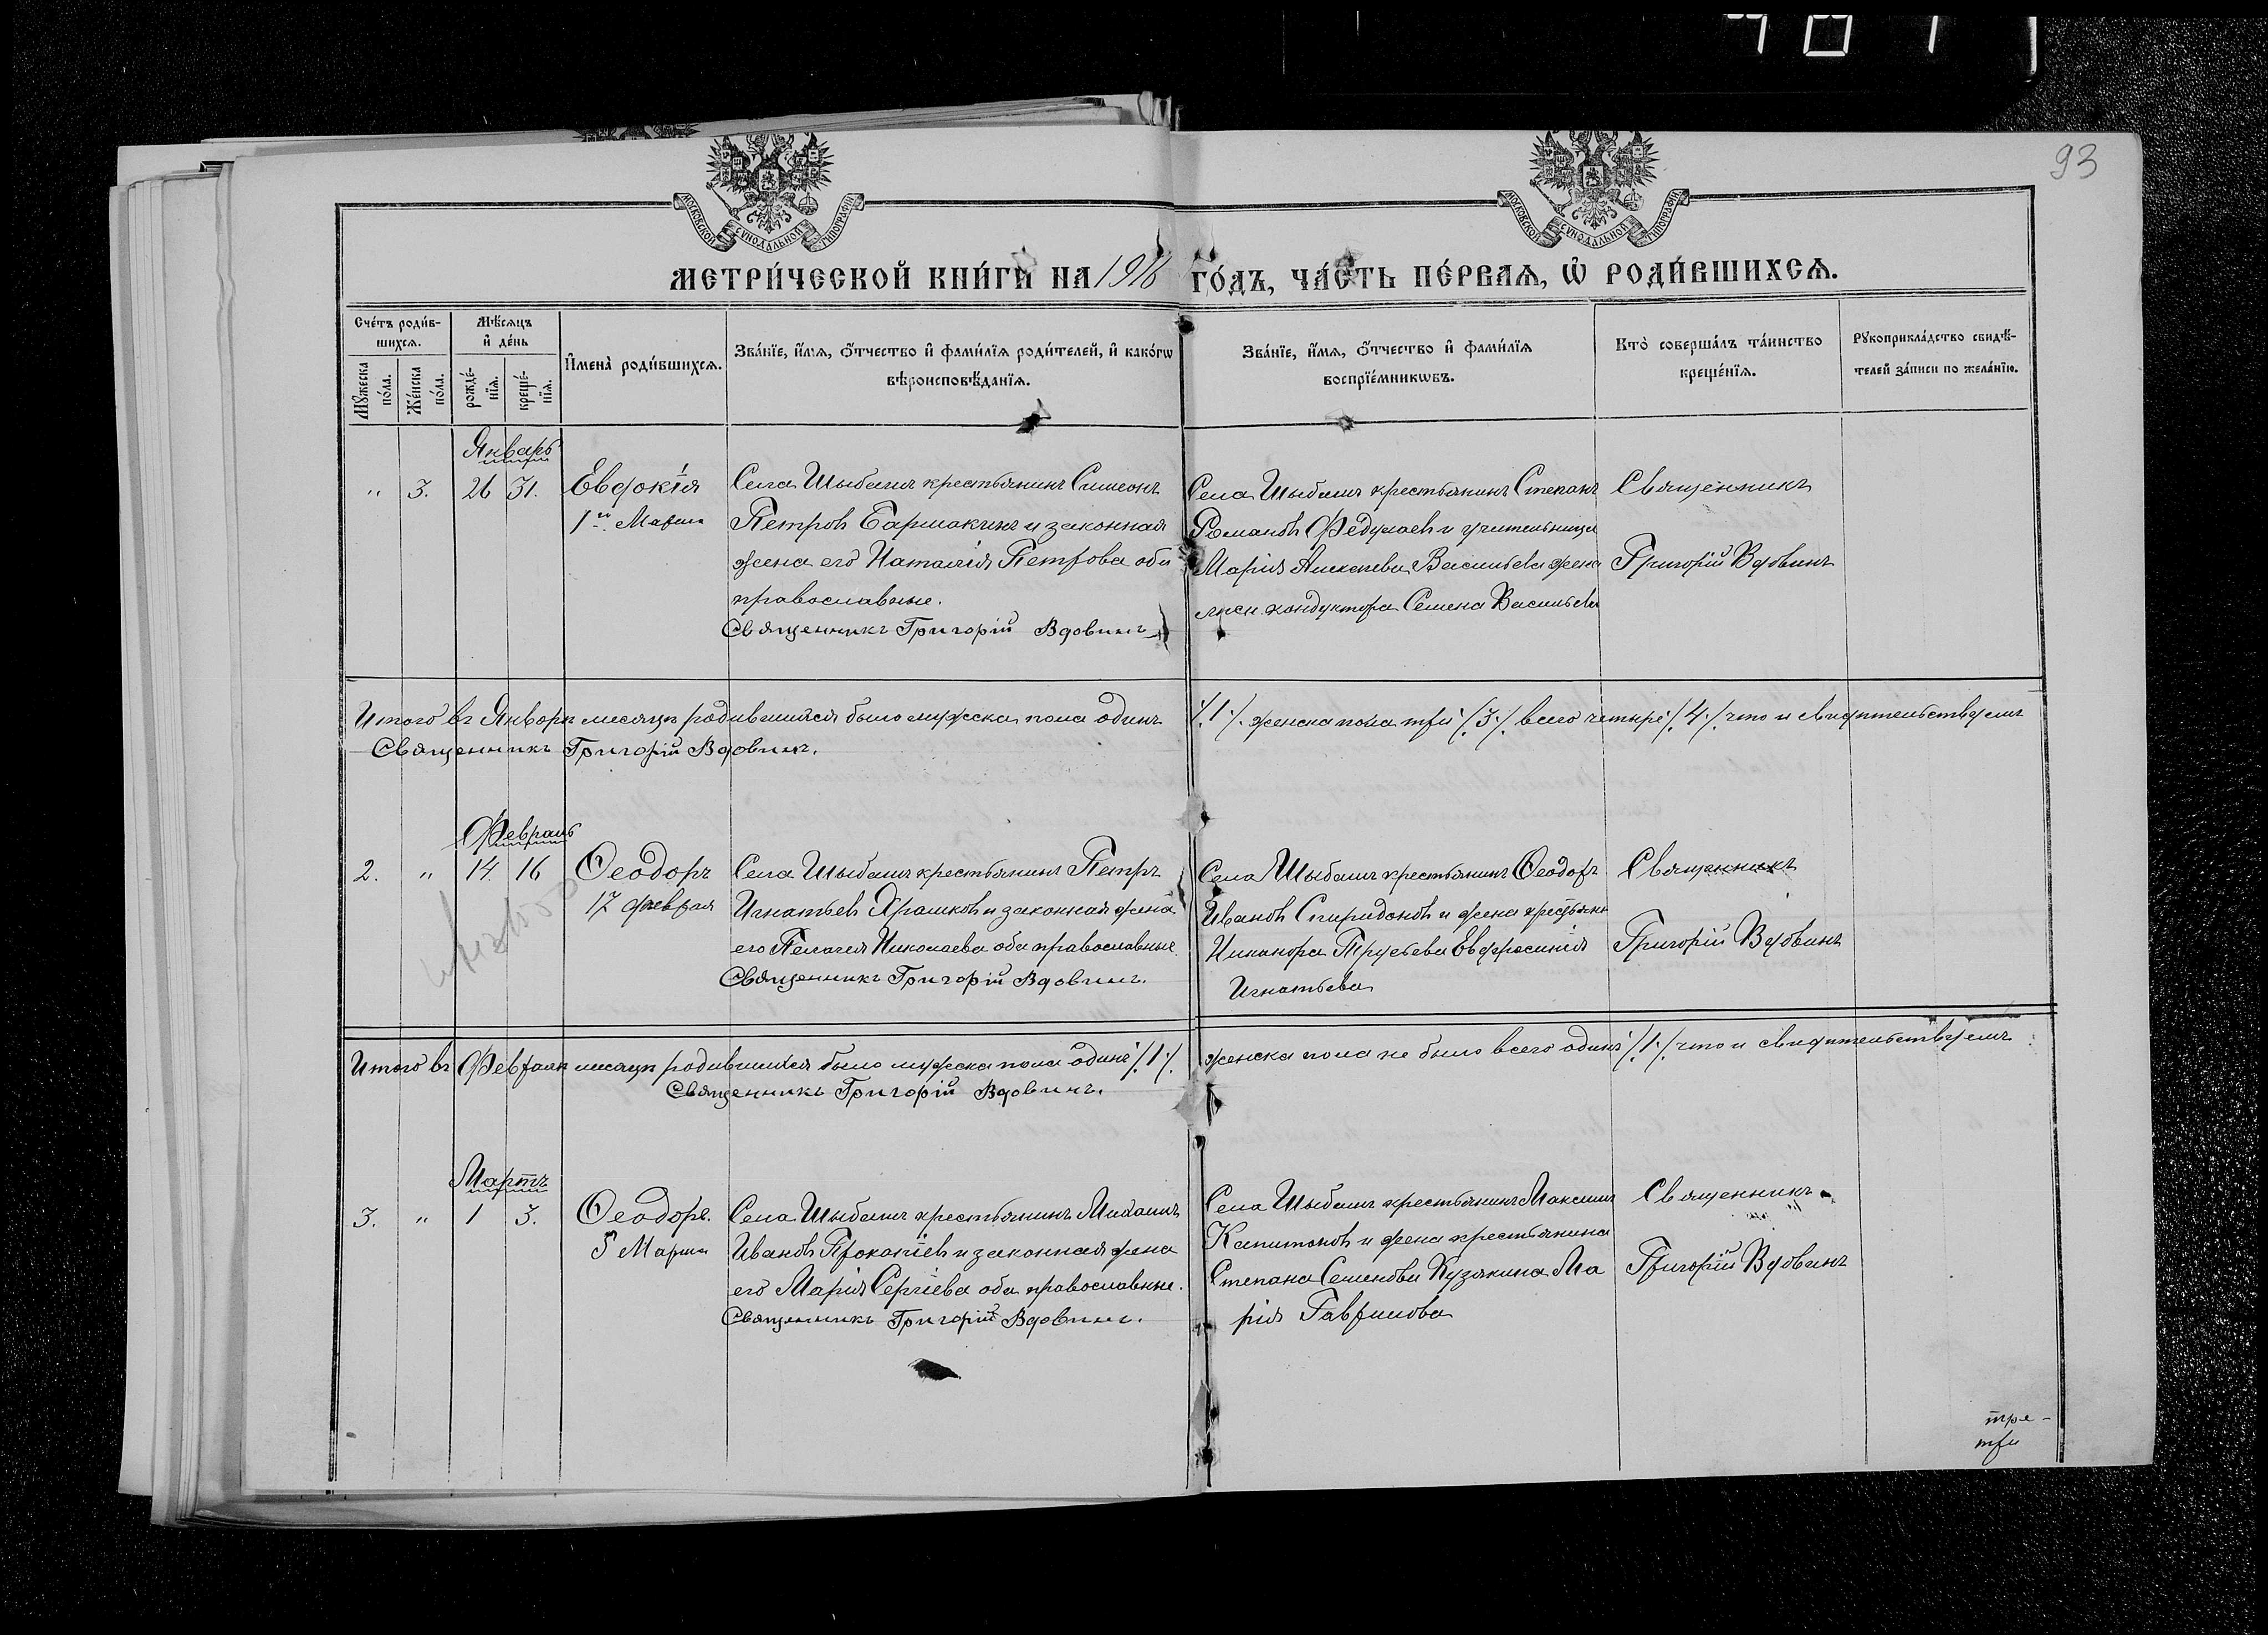 93
МОСКОВСКОЙ СѴНОДАЛЬНОЙ ТИПОГРАФІИ
МОСКОВСКОЙ СѴНОДАЛЬНОЙ ТИПОГРАФІИ
МЕТРИ́ЧЕСКОЙ КНИ́ГИ НА 1916 ГО́ДЪ, ЧА́СТЬ ПЕ́РВАЯ, Ѡ РОДИ́ВШИХСЯ.
Сче́тъ роди́в-
шихся.
Мѣ́сяцъ
и де́нь
Мꙋ́жеска по́ла.
Же́нска по́ла.
рожде́-
нїя.
креще́-
нїя.
Имена̀ роди́вшихся.
Зва́нїе, и́мя, о́тчество и фами́лїя роди́телей, и како́гѡ
вѣроисповѣ́данїя.
Зва́нїе, и́мя, о́тчество и фами́лїя
воспрїе́мникѡвъ.
Кто̀ соверша́лъ та́инство
креще́нїя.
Рꙋкоприкла́дство свидѣ́-
телей за́писи по жела́нїю.
Январь
" 3. 26 31. Евдокія
1го Марта
Села Шыбаши крестьянинъ Симеонъ
Петровъ Бармакинъ и законная
жена его Наталія Петрова оба
православные.
Священникъ Григорій Вдовинъ
Села Шыбаши крестьянинъ Степанъ
Романовъ Федулаевъ и учительница
Марія Алексѣева Васильева жена
кондуктора Семена Васильева
Священникъ
Григорій Вдовинъ
Итого въ Январѣ месяцѣ родившихся было мужска пола одинъ /1/. женска пола три /3/. всего четыре /4/. что и свидѣтельствуемъ
Священникъ Григорій Вдовинъ.
Февраль
2. " 14 16 Ѳеодоръ
17 февраля
Села Шыбаши крестьянинъ Петръ
Игнатьевъ Храмковъ и законная жена
его Пелагея Николаева оба православные
Священникъ Григорій Вдовинъ.
Села Шыбаши крестьянинъ Ѳеодоръ
Ивановъ Спиридоновъ и жена крестьяни
Никанора Евфросинія
Игнатьева
Священникъ
Григорій Вдовинъ
Итого въ Февралѣ месяцѣ родившихся было мужска пола одинъ /1/. женска пола не было всего одинъ /1/. что и свидѣтельствуемъ
Священникъ Григорій Вдовинъ.
Мартъ
3. " 1 3. Ѳеодоръ.
5 Марта
Села Шыбаши крестьянинъ Михаилъ
Ивановъ Прокопіевъ и законная жена
его Марія Сергіева оба православные.
Священникъ Григорій Вдовинъ.
Села Шыбаши крестьянинъ Максимъ
Капитоновъ и жена крестьянина
Степана Семенова Кузякина Ма
рія Гаврилова
Священникъ
Григорій Вдовинъ
тре-
три